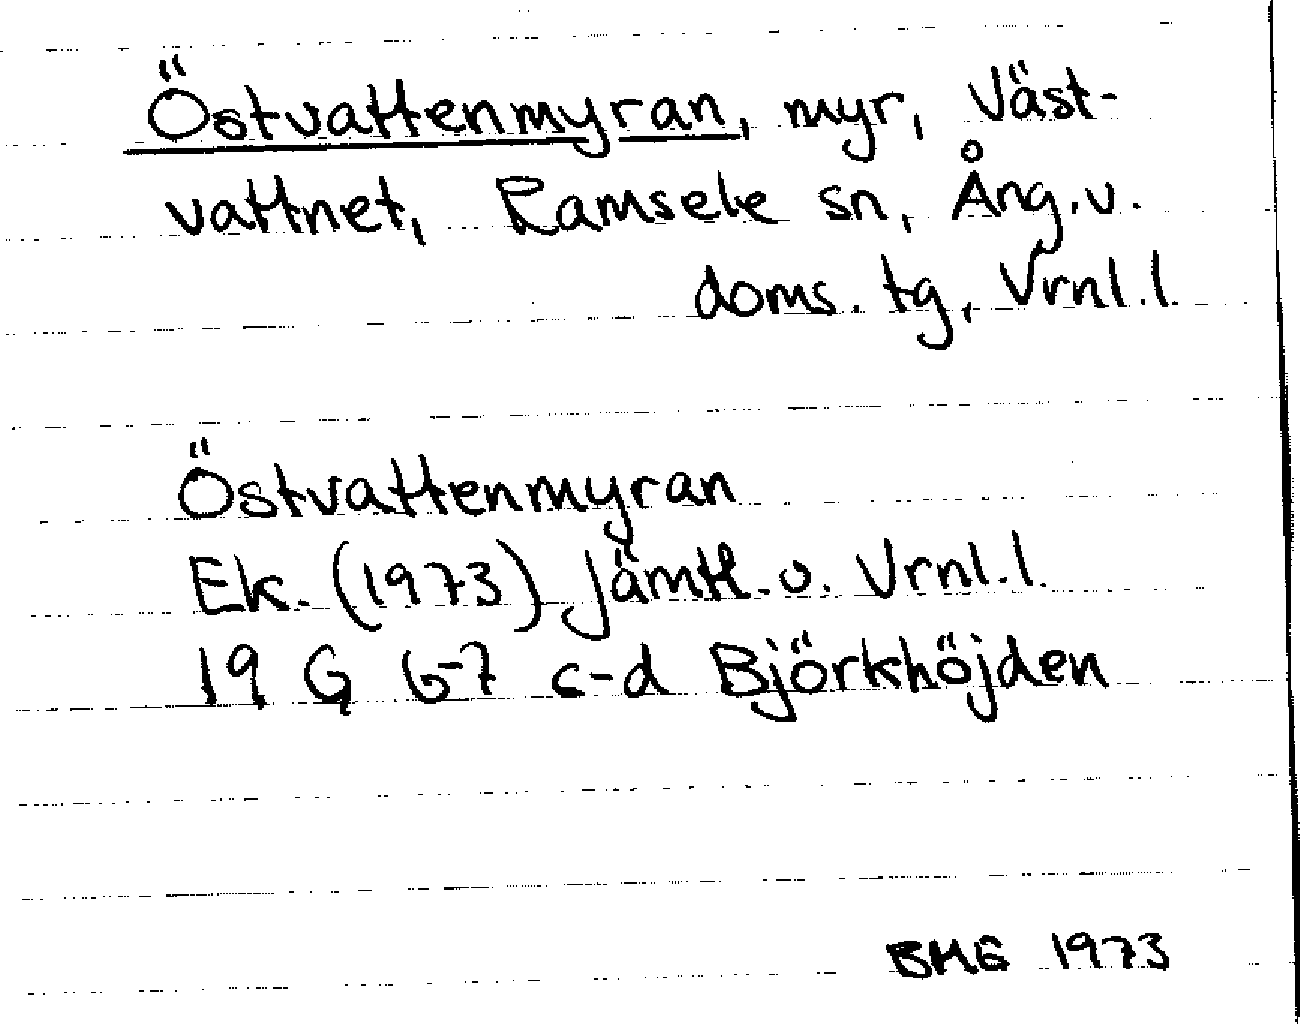 Östvattenmyran, myr, Väst-
vattnet, Ramsele sn, Ång. v.
doms. tg, Vrnl. l.
Östvattenmyran
Ek. (1973) Jämtl. o. Vrnl. l.
19 G 6-7 c-d Björkhöjden
BMG 1973